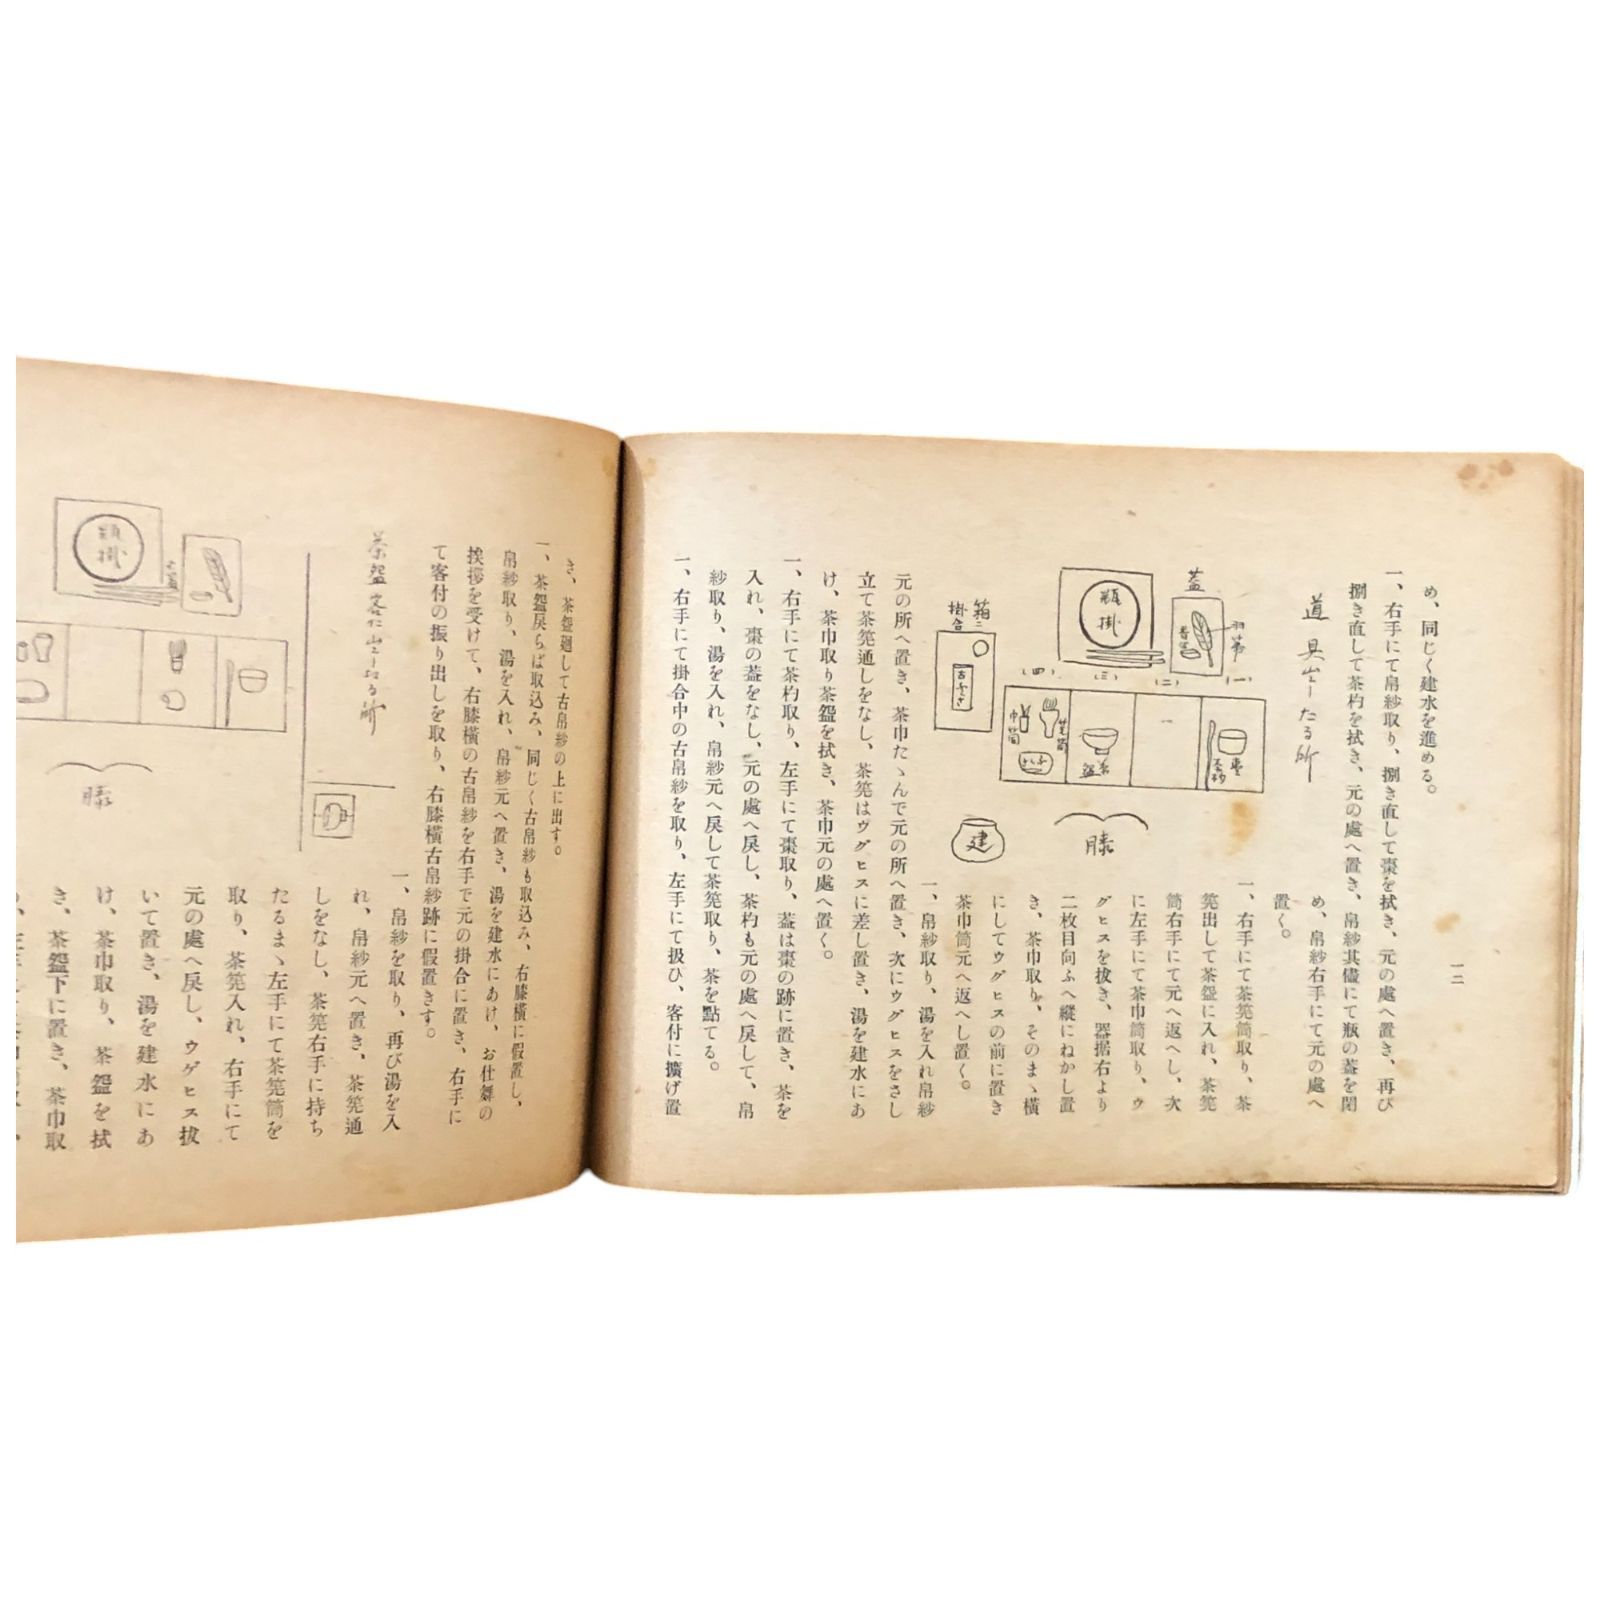 め、同じく建水を進める。
一、右手にて帛紗取り、捌き直して棗を拭き、元の處へ置き、再び
捌き直して茶杓を拭き、元の處へ置き、帛紗其儘にて瓶の蓋を閉
め、帛紗右手にて元の處へ
置く。
道具出したる所
蓋
羽箒
香合
瓶掛
箱ニ
掛合
古ふくさ
(一)
(二)
(三)
(四)
棗
茶杓
茶盌
茶筅筒
巾筒
建
膝
一、右手にて茶筅筒取り、茶
筅出して茶盌に入れ、茶筅
筒右手にて元へ返へし、次
に左手にて茶巾筒取り、ウ
グヒスを拔き、器据右より
二枚目向ふへ縱にねかし置
き、茶巾取り、そのまゝ橫
にしてウグヒスの前に置き
茶巾筒元へ返へし置く。
一、帛紗取り、湯を入れ帛紗
元の所へ置き、茶巾たゝんで元の所へ置き、次にウグヒスをさし
立て茶筅通しをなし、茶筅はウグヒスに差し置き、湯を建水にあ
け、茶巾取り茶盌を拭き、茶巾元の處へ置く。
一、右手にて茶杓取り、左手にて棗取り、蓋は棗の跡に置き、茶を
入れ、棗の蓋をなし、元の處へ戾し、茶杓も元の處へ戾して、帛
紗取り、湯を入れ、帛紗元へ戾して茶筅取り、茶を點てる。
一、右手にて掛合中の古帛紗を取り、左手にて扱ひ、客付に擴げ置
一二
き、茶盌廻して古帛紗の上に出す。
一、茶盌戾らば取込み、同じく古帛紗も取込み、右膝橫に假置し、
帛紗取り、湯を入れ、帛紗元へ置き、湯を建水にあけ、お仕舞の
挨拶を受けて、右膝橫の古帛紗を右手で元の掛合に置き、右手に
て客付の振り出しを取り、右膝橫古帛紗跡に假置きす。
茶盌客に出したる所
瓶掛
蓋
膝
一、帛紗を取り、再び湯を入
れ、帛紗元へ置き、茶筅通
しをなし、茶筅右手に持ち
たるまゝ左手にて茶筅筒を
取り、茶筅入れ、右手にて
元の處へ戾し、ウグヒス拔
いて置き、湯を建水にあ
け、茶巾取り、茶盌を拭
き、茶盌下に置き、茶巾取